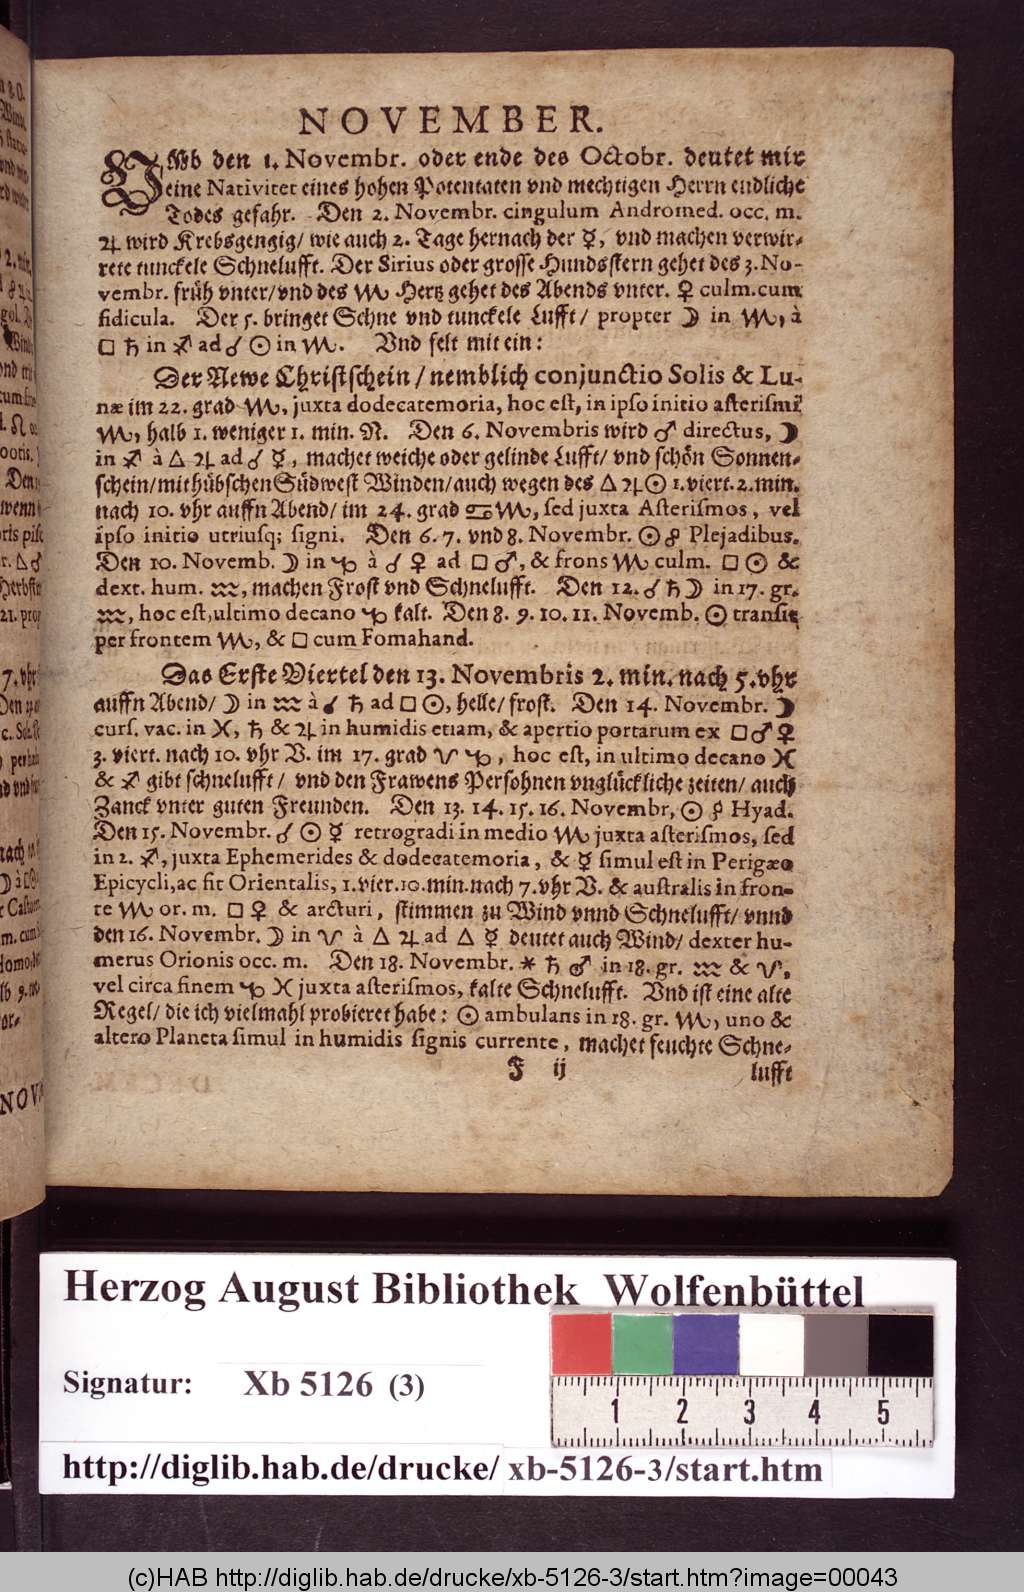 NOVEMBER.
VMb den 1. Novembr. oder ende des Octobr. deutet mir
eine Nativitet eines hohen Potentaten vnd mechtigen Herrn endliche
Todes gefahr. Den 2. Novembr. cingulum Andromed. occ. m.
♃ wird Krebsgengig/ wie auch 2. Tage hernach der ☿, vnd machen verwir-
rete tunckele Schnelufft. Der Sirius oder grosse Hundsstern gehet des 3. No-
vembr. früh vnter/ vnd des ♏ Hertz gehet des Abends vnter. ♀ culm. cum
fidicula. Der 5. bringet Schne vnd tunckele Lufft/ propter ☽ in ♏, à
□ ♄ in ♐ ad ☌ ☉ in ♏. Vnd felt mit ein:
Der Newe Christschein/ nemblich conjunctio Solis & Lu-
næ im 22. grad ♏, juxta dodecatemoria, hoc est, in ipso initio asterismi
♏, halb 1. weniger 1. min. N. Den 6. Novembris wird ♂ directus, ☽
in ♐ à △ ♃ ad ☌ ☿, machet weiche oder gelinde Lufft/ vnd schön Sonnen-
schein/ mit hübschen Südwest Winden/ auch wegen des △ ♃ ☉ 1. viert. 2. min.
nach 10. vhr auffn Abend/ im 24. grad ♋ ♏, sed juxta Asterismos, vel
ipso initio utriusq; signi. Den 6. 7. vnd 8. Novembr. ☉ ☍ Plejadibus.
Den 10. Novemb. ☽ in ♑ à ☌ ♀ ad □ ♂, & frons ♏ culm. □ ☉ &
dext. hum. ♒, machen Frost vnd Schnelufft. Den 12. ☌ ♄ ☽ in 17. gr.
♒, hoc est, ultimo decano ♑ kalt. Den 8. 9. 10. 11. Novemb. ☉ transit
per frontem ♏, & □ cum Fomahand.
Das Erste Viertel den 13. Novembris 2. min. nach 5. vhr
auffn Abend/ ☽ in ♒ à ☌ ♄ ad □ ☉, helle/ frost. Den 14. Novembr. ☽
curs. vac. in ♓, ♄ & ♃ in humidis etiam, & apertio portarum ex □ ♂ ♀
3. viert. nach 10. vhr V. im 17. grad ♈ ♑, hoc est, in ultimo decano ♓
& ♐ gibt schnelufft/ vnd den Frawens Persohnen vnglückliche zeiten/ auch
Zanck vnter guten Freunden. Den 13. 14. 15. 16. Novembr, ☉ ☍ Hyad.
Den 15. Novembr. ☌ ☉ ☿ retrogradi in medio ♏ juxta asterismos, sed
in 2. ♐, juxta Ephemerides & dodecatemoria, & ☿ simul est in Perigæo
Epicycli, ac fit Orientalis, 1. vier. 10. min. nach 7. vhr V. & australis in fron-
te ♏ or. m. □ ♀ & arcturi, stimmen zu Wind vnnd Schnelufft/ vnnd
den 16. Novembr. ☽ in ♈ à △ ♃ ad △ ☿ deutet auch Wind/ dexter hu-
merus Orionis occ. m. Den 18. Novembr. ⚹ ♄ ♂ in 18. gr. ♒ & ♈,
vel circa finem ♑ ♓ juxta asterismos, kalte Schnelufft. Vnd ist eine alte
Regel/ die ich vielmahl probieret habe: ☉ ambulans in 18. gr. ♏, uno &
altero Planeta simul in humidis signis currente, machet feuchte Schne-
F ij lufft
Herzog August Bibliothek Wolfenbüttel
Signatur: Xb 5126 (3)
1 2 3 4 5
http://diglib.hab.de/drucke/ xb-5126-3/start.htm
(c)HAB http://diglib.hab.de/drucke/xb-5126-3/start.htm?image=00043